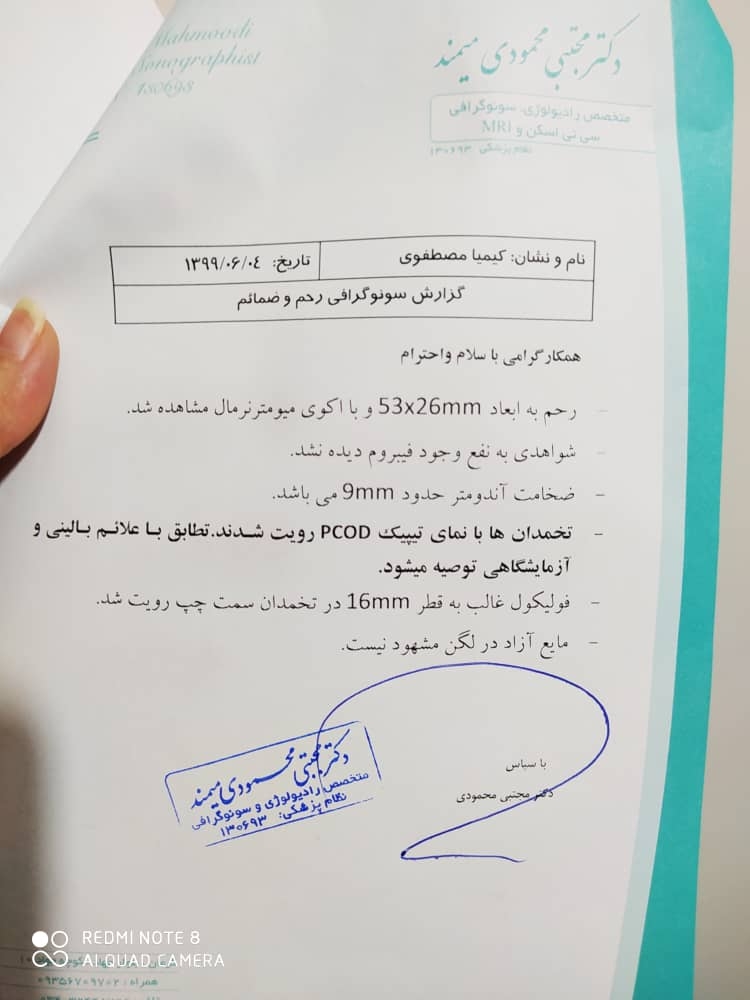 Mahmoodi
Sonographist
130693
دکتر مجتبی محمودی میمند
متخصص رادیولوژی، سونوگرافی
سی تی اسکن و MRI
نظام پزشکی ۱۳۰۶۹۳
نام و نشان: کیمیا مصطفوی
تاریخ: ۱۳۹۹/۰۶/۰۴
گزارش سونوگرافی رحم و ضمائم
همکار گرامی با سلام واحترام
- رحم به ابعاد 53x26mm و با اکوی میومترنرمال مشاهده شد.
- شواهدی به نفع وجود فیبروم دیده نشد.
- ضخامت آندومتر حدود 9mm می باشد.
- تخمدان ها با نمای تیپیک PCOD رویت شدند.تطابق با علائم بالینی و
آزمایشگاهی توصیه میشود.
- فولیکول غالب به قطر 16mm در تخمدان سمت چپ رویت شد.
- مایع آزاد در لگن مشهود نیست.
با سپاس
دکتر مجتبی محمودی
دکتر مجتبی محمودی میمند
متخصص رادیولوژی و سونوگرافی
نظام پزشکی: ۱۳۰۶۹۳
REDMI NOTE 8
AI QUAD CAMERA
همراه: ۰۹۳۵۶۷۰۹۷۰۲